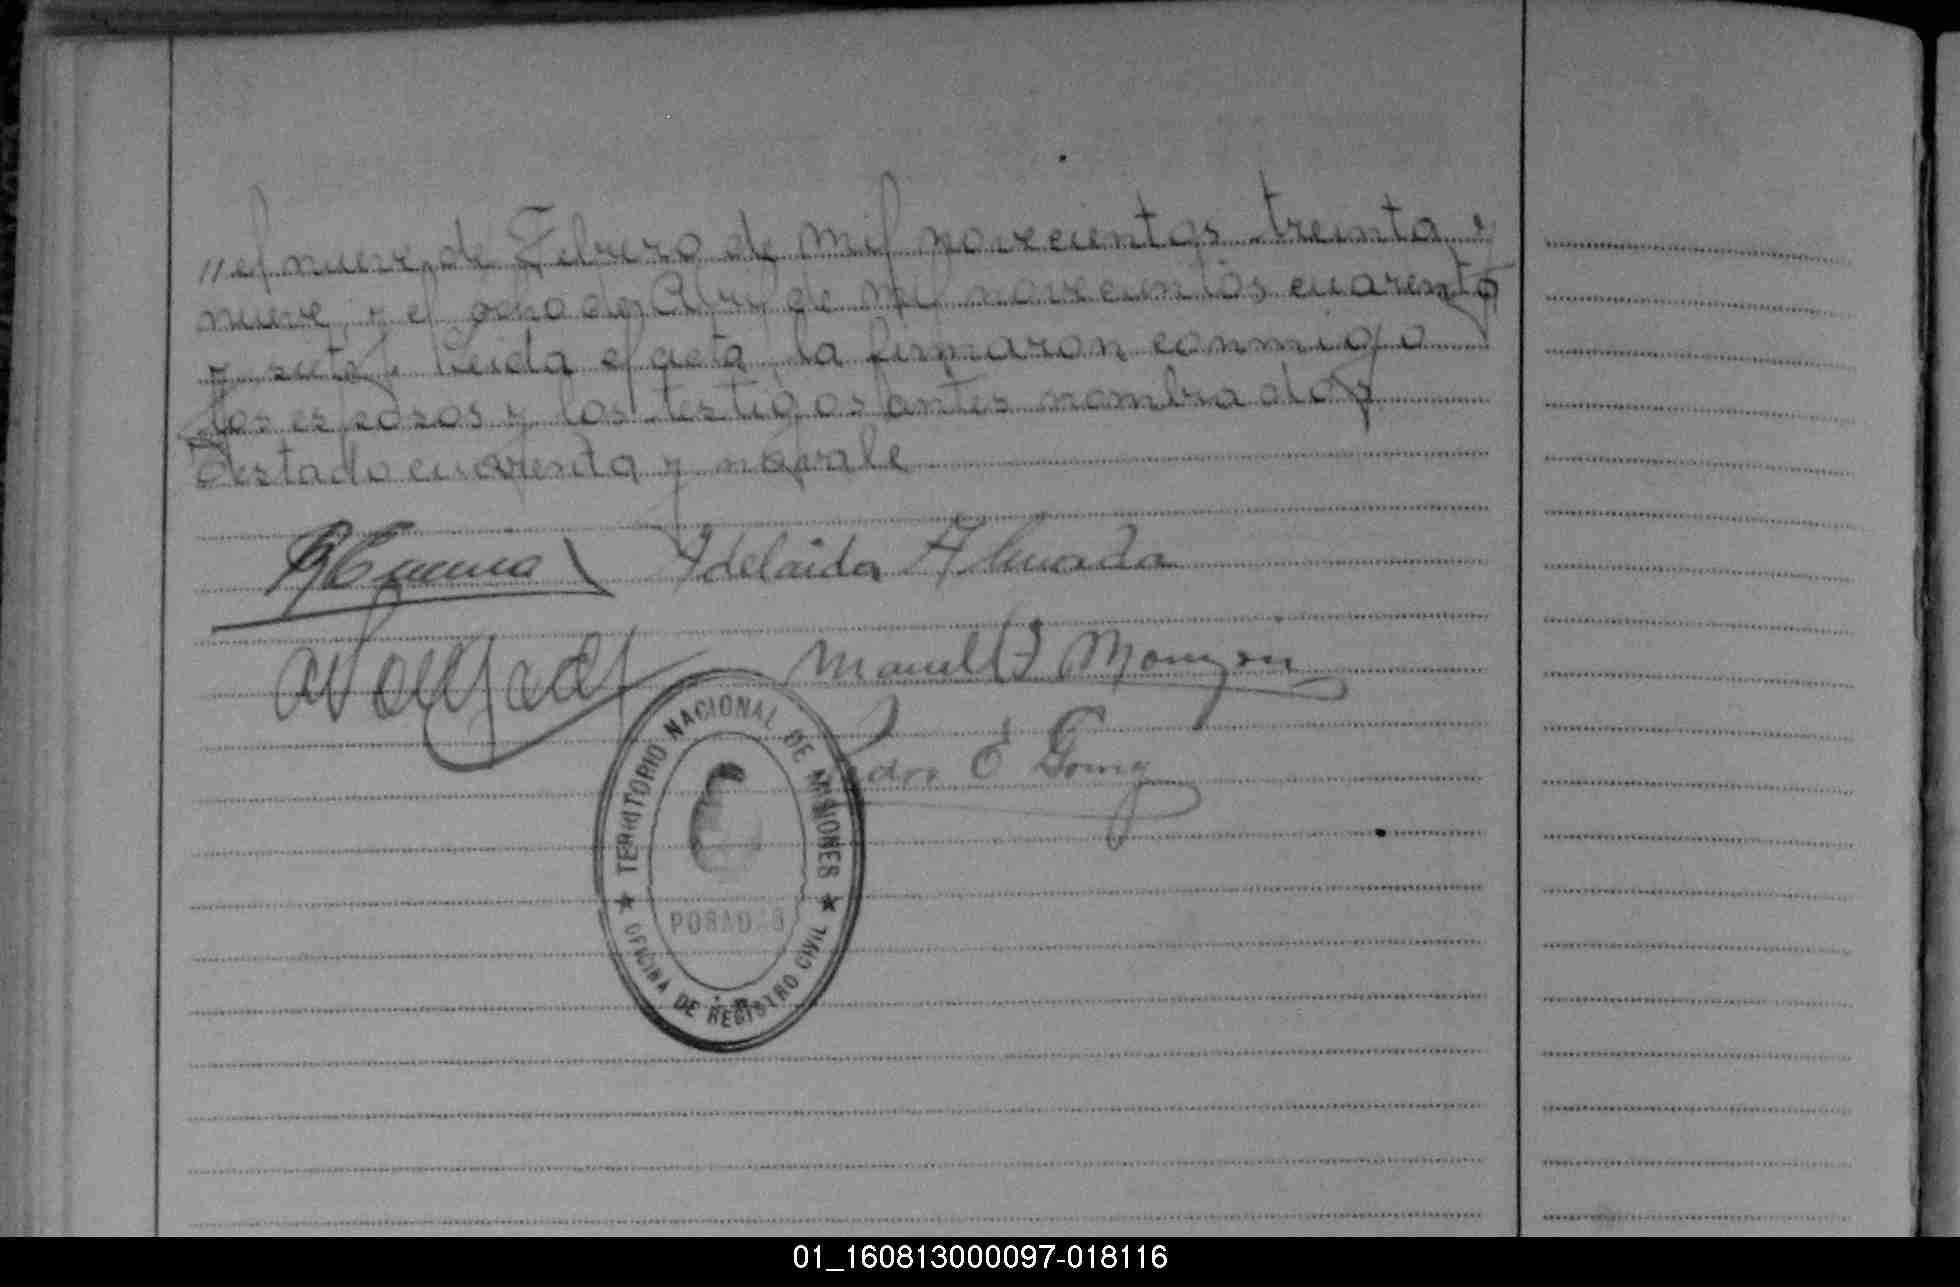 "el nueve de Febrero de mil novecientos treinta y
nueve, y el ocho de Abril de mil novecientos cuarenta
y siete, Leida el acta, la firmaron conmigo
los esposos y los testigos antes nombrados
Testado cuarenta y no vale
Adelaida Almada
Manuel Monzon
Pedro E Gomez
TERRITORIO NACIONAL DE MISIONES
POSADAS
OFICINA DE REGISTRO CIVIL
01_160813000097-018116